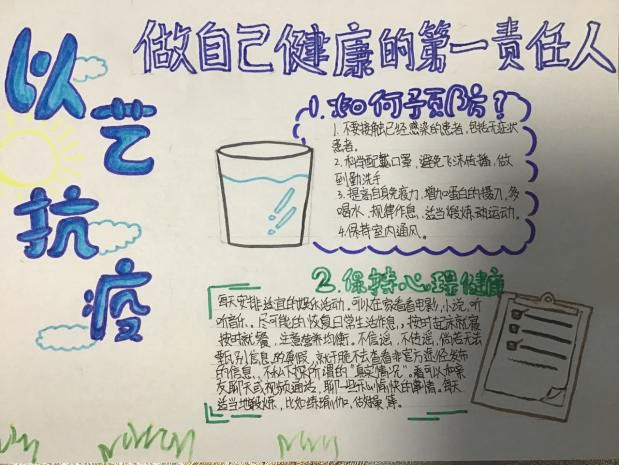 做自己健康的第一责任人
以艺抗疫
1.如何预防?
1.不要接触已经感染的患者,包括无症状
患者。
2.科学配戴口罩,避免飞沫传播,做
到勤洗手
3.提高自身免疫力,增加蛋白的摄入,多
喝水,规律作息,适当锻炼,动运动。
4.保持室内通风。
2.保持心理健康
每天安排适宜的娱乐活动,可以在家看看电影,小说,听
听音乐,尽可能的恢复日常生活作息,按时起床就寝
按时就餐,注意营养均衡,不信谣,不传谣,倘若无法
甄别信息的真假,就干脆不去查看非官方途径发布
的信息,不私下探所谓的"真实情况"。可以和亲
友聊天或视频通话,聊一些开心愉快的事情。每天
适当地锻炼,比如练瑜伽,做操等。